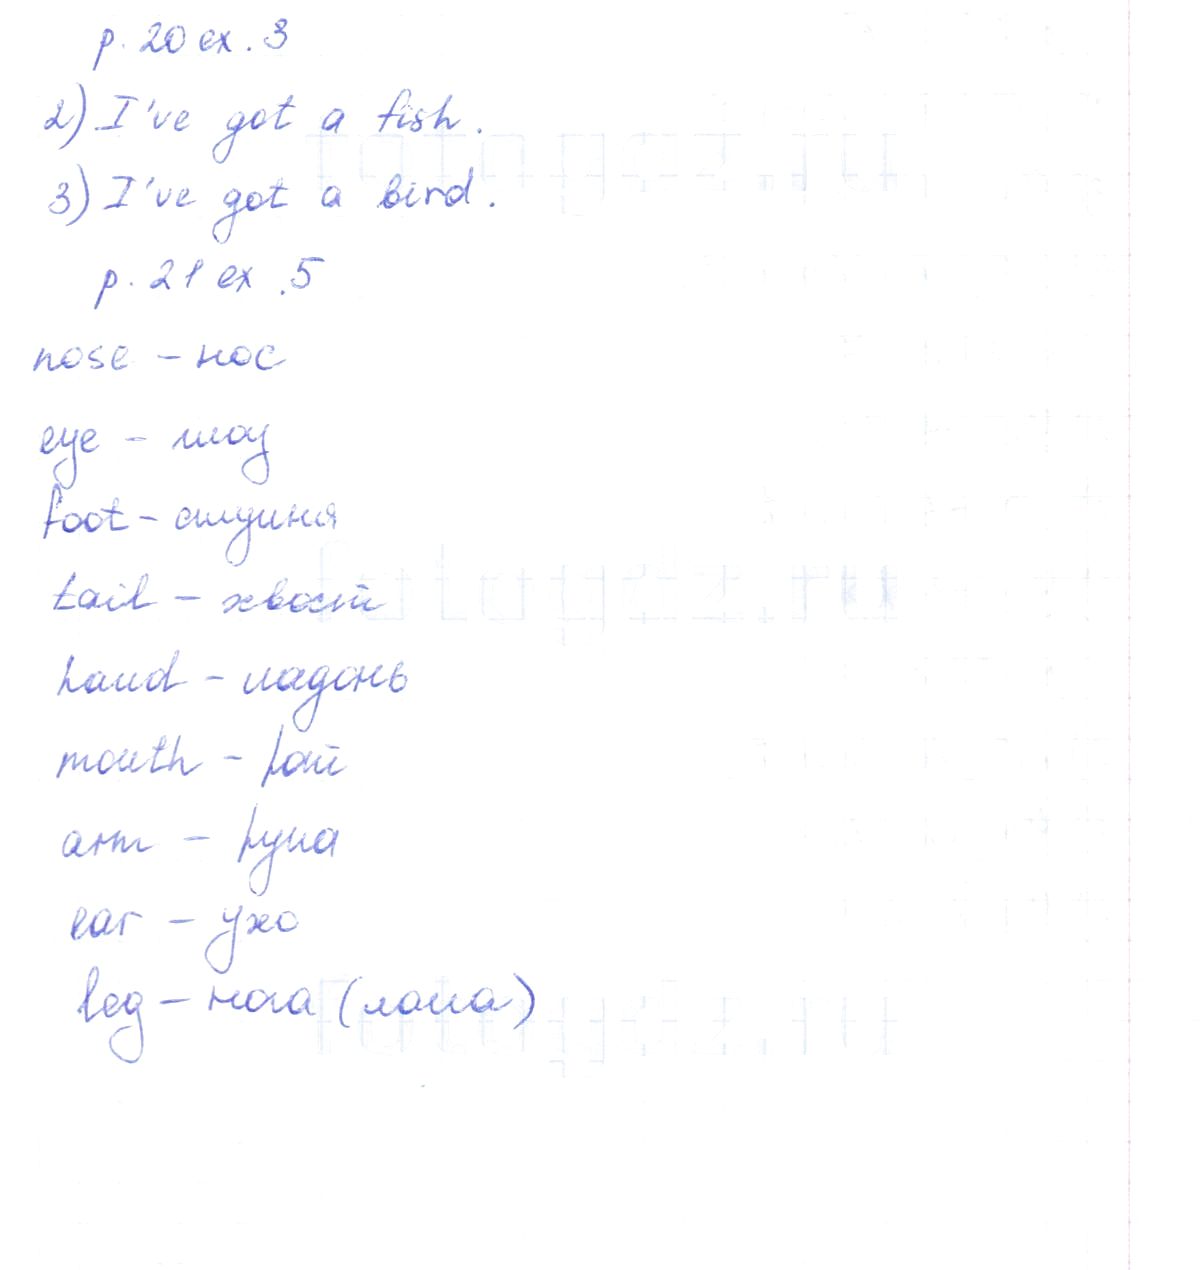 p. 20 ex. 3
2) I've got a fish.
3) I've got a bird.
p. 21 ex. 5
nose – нос
eye – глаз
foot – ступня
tail – хвост
hand – ладонь
mouth – рот
arm – рука
ear – ухо
leg – нога (лапа)